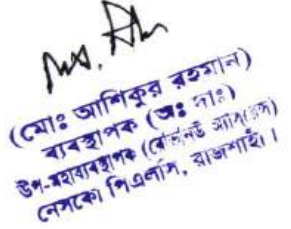 (মোঃ আশিকুর রহমান)
ব্যবস্থাপক (অঃ দাঃ)
উপ-মহাব্যবস্থাপক (রেভিনিউ অ্যাসিওরেন্স)
নেসকো পিএলসি, রাজশাহী।